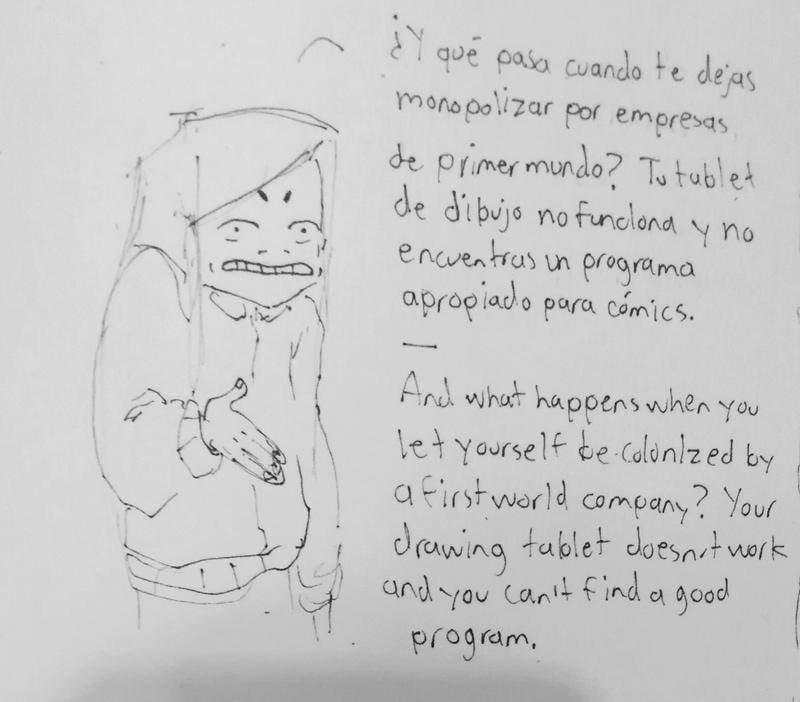 ¿Y qué pasa cuando te dejas
monopolizar por empresas
de primer mundo? Tu tablet
de dibujo no funciona y no
encuentras un programa
apropiado para cómics.
—
And what happens when you
let yourself be colonized by
a first world company? Your
drawing tablet doesn't work
and you can't find a good
program.